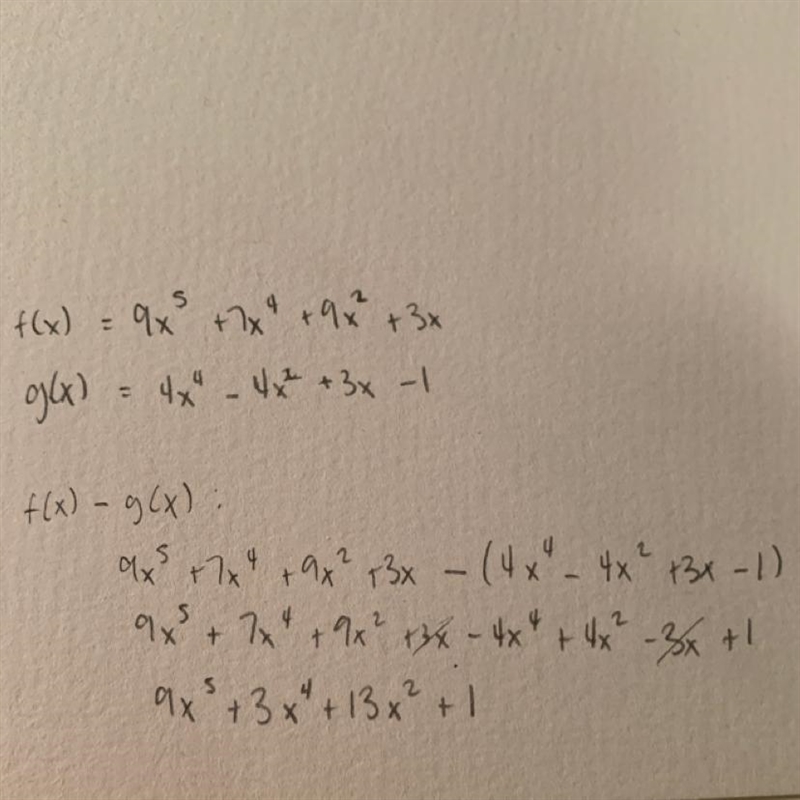 f(x) = 9x⁵ +7x⁴ +9x² +3x
g(x) = 4x⁴ - 4x² +3x -1
f(x) - g(x) :
9x⁵ +7x⁴ +9x² +3x - (4x⁴ - 4x² +3x -1)
9x⁵ + 7x⁴ +9x² +3x - 4x⁴ + 4x² -3x +1
9x⁵ +3x⁴ +13x² +1